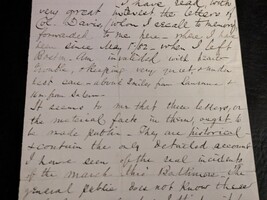 I have read with
very great interest the letters of
Col Davis which I recall to have
forwarded to me here - where I have
been since May 1st/02 - when I left
Boston. Am invalided with heart
trouble, & keeping very quiet, & under
best care - about 2 miles from
It seems to me that these letters, or
the material facts in them, ought to
be made public - They are historical
& contain the only detailed account
I have seen of the real incidents
of the march thro' Baltimore. The
general public does not know these